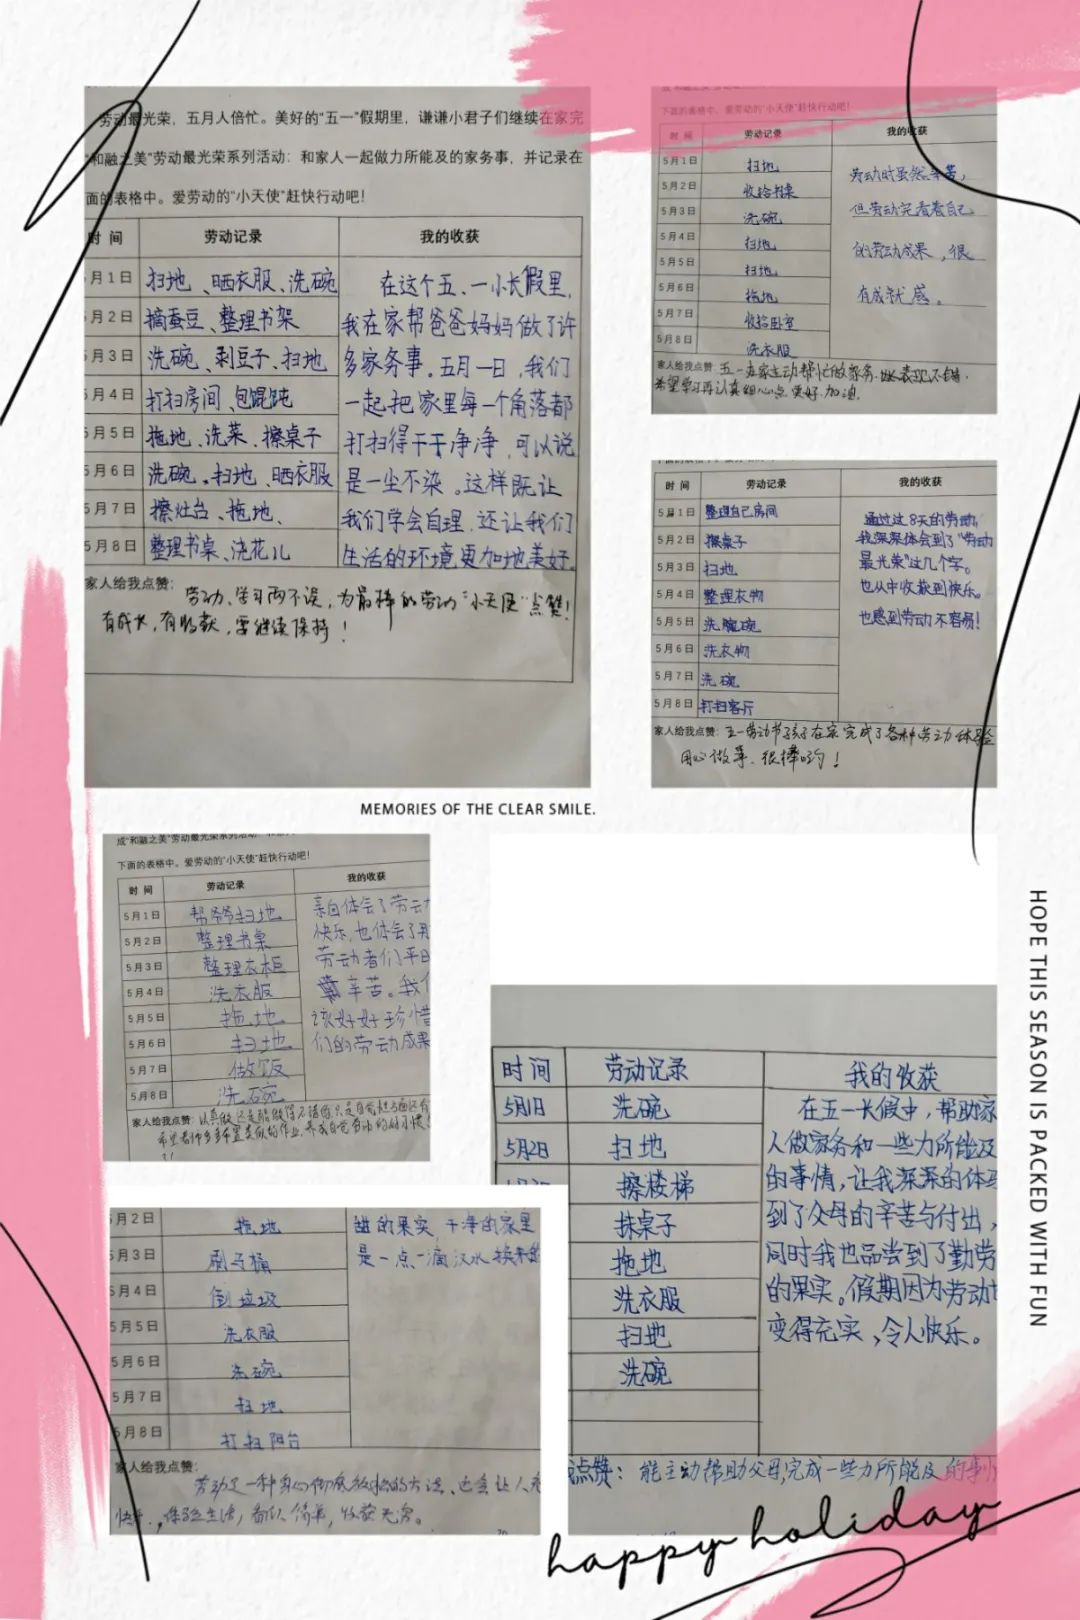 劳动最光荣，五月人倍忙。美好的“五一”假期里，谦谦小君子们继续在家完
“和融之美”劳动最光荣系列活动：和家人一起做力所能及的家务事，并记录在
面的表格中。爱劳动的“小天使”赶快行动吧！
时 间 劳动记录 我的收获
月1日 扫地、晒衣服、洗碗
月2日 摘蚕豆、整理书架
月3日 洗碗、剥豆子、扫地
月4日 打扫房间、包馄饨
月5日 拖地、洗菜、擦桌子
月6日 洗碗、扫地、晒衣服
月7日 擦灶台、拖地、
5月8日 整理书桌、浇花儿
在这个五、一小长假里，
我在家帮爸爸妈妈做了许
多家务事。五月一日，我们
一起把家里每一个角落都
打扫得干干净净，可以说
是一尘不染。这样既让
我们学会自理，还让我们
生活的环境更加地美好。
家人给我点赞：劳动、学习两不误，为最棒的劳动“小天使”点赞！
有成长，有收获，要继续保持！
下面的表格中。爱劳动的“小天使”赶快行动吧！
时 间 劳动记录 我的收获
5月1日 扫地
5月2日 收拾书桌
5月3日 洗碗
5月4日 扫地
5月5日 扫地
5月6日 拖地
5月7日 收拾卧室
5月8日 洗衣服
劳动时虽然辛苦，
但劳动完看着自己
的劳动成果，很
有成就感。
家人给我点赞：五一在家主动帮忙做家务，表现不错，
希望学习再认真细心点更好，加油。
时 间 劳动记录 我的收获
5月1日 整理自己房间
5月2日 擦桌子
5月3日 扫地
5月4日 整理衣物
5月5日 洗碗
5月6日 洗衣物
5月7日 洗碗
5月8日 打扫客厅
通过这8天的劳动，
我深深体会到了“劳动
最光荣”这几个字。
也从中收获到快乐。
也感到劳动不容易！
家人给我点赞：五一劳动节孩子在家完成了各种劳动体验
用心做事、很棒哟！
MEMORIES OF THE CLEAR SMILE.
成“和融之美”劳动最光荣系列活动：
下面的表格中。爱劳动的“小天使”赶快行动吧！
时 间 劳动记录 我的收获
5月1日 帮爷爷扫地
5月2日 整理书桌
5月3日 整理衣柜
5月4日 洗衣服
5月5日 拖地
5月6日 扫地
5月7日 做饭
5月8日 洗碗
亲自体会了劳动
快乐，也体会了那
劳动者们平日
辛苦。我们
该好好珍惜
们的劳动成果
家人给我点赞：
时间 劳动记录 我的收获
5月1日 洗碗
5月2日 扫地
擦楼梯
抹桌子
拖地
洗衣服
扫地
洗碗
在五一长假中，帮助家
人做家务和一些力所能及
的事情，让我深深的体
到了父母的辛苦与付出，
同时我也品尝到了勤劳
的果实。假期因为劳动
变得充实，令人快乐。
点赞：能主动帮助父母完成一些力所能及的事
月2日 拖地
5月3日 刷马桶
5月4日 倒垃圾
5月5日 洗衣服
5月6日 洗碗
5月7日 扫地
5月8日 打扫阳台
的果实，干净的家里
是一点一滴汗水换来
家人给我点赞：
劳动是一种身心彻底放松的方法、也会让人
体验生活，看似简单，收获无穷。
HOPE THIS SEASON IS PACKED WITH FUN
happy holiday